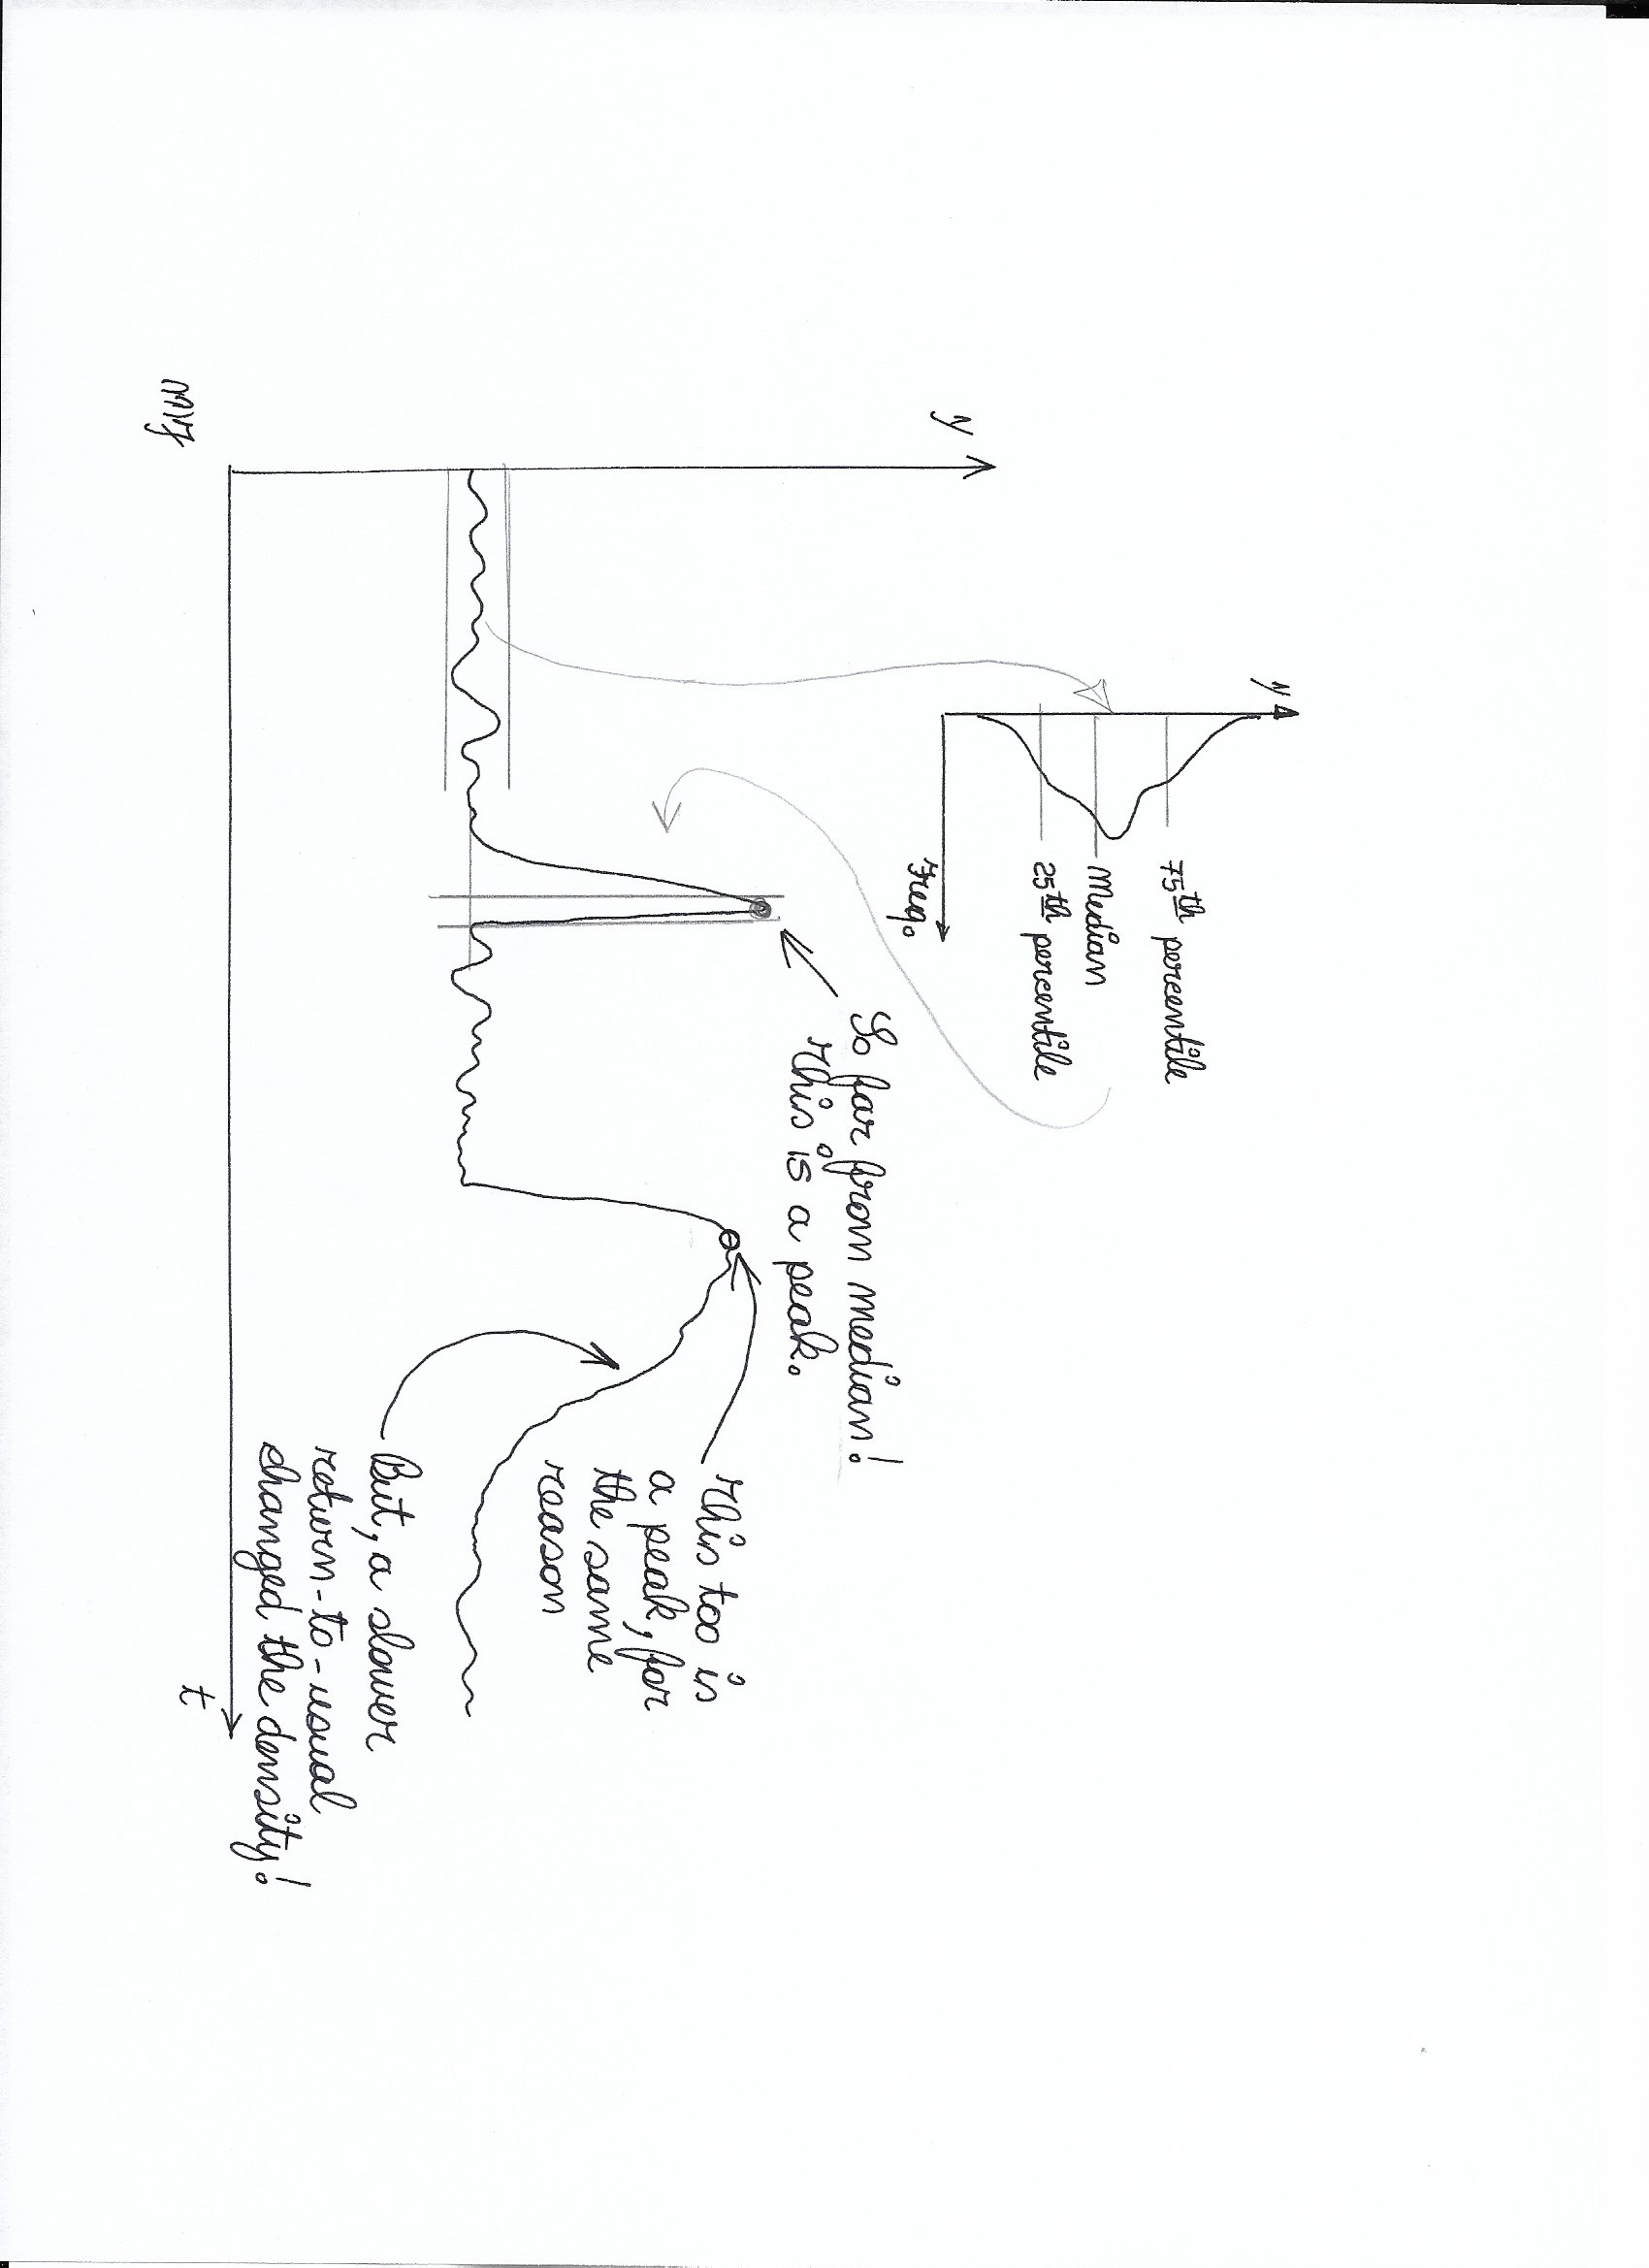 y
75th percentile
Median
25th percentile
Freq.
y
So far from median!
This is a peak.
This too is
a peak, for
the same
reason
But, a slower
return-to-usual
changed the density!
t